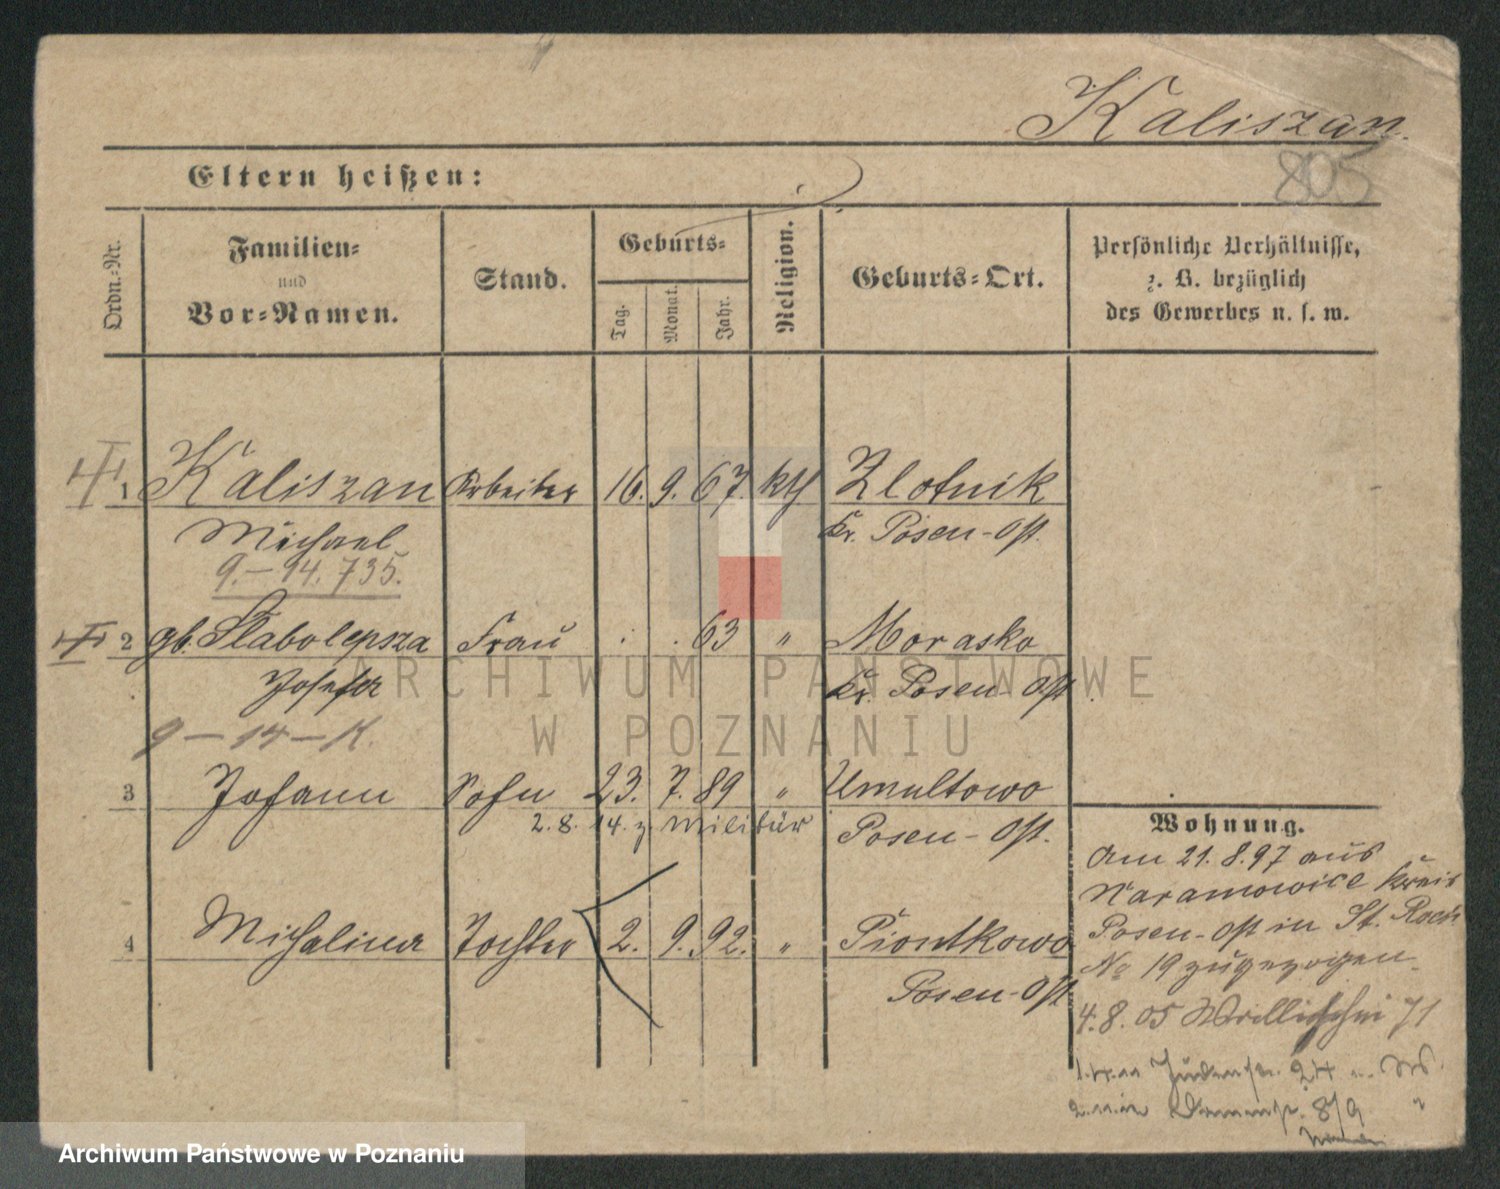 Kaliszan.
805
Eltern heißen:
Ordn.-Nr.
Familien-
und
Vor-Namen.
Stand.
Geburts-
Tag.
Monat.
Jahr.
Religion.
Geburts-Ort.
Persönliche Verhältnisse,
z. B. bezüglich
des Gewerbes u. s. w.
1 Kaliszan Arbeiter 16. 9. 67. kth Zlotnik
Michael Kr. Posen-Ost.
9.-94.735.
2 gb. Slabolepsza Frau . . 63 " Morasko
Josefa Kr. Posen Ost.
9-14-K.
3 Johann Sohn 23. 7. 89 " Umultowo
2. 8. 14. z. Militär Posen-Ost.
4 Michalina Tochter 2. 9. 92. " Piontkowo
Posen-Ost
Wohnung.
Am 21. 8. 97 aus
Naramowice Kreis
Posen-Ost in St. Roch
No 19 zugezogen.
4. 8. 05 Wallischei 71
Judenstr. 24
8/9
ARCHIWUM PAŃSTWOWE
W POZNANIU
Archiwum Państwowe w Poznaniu